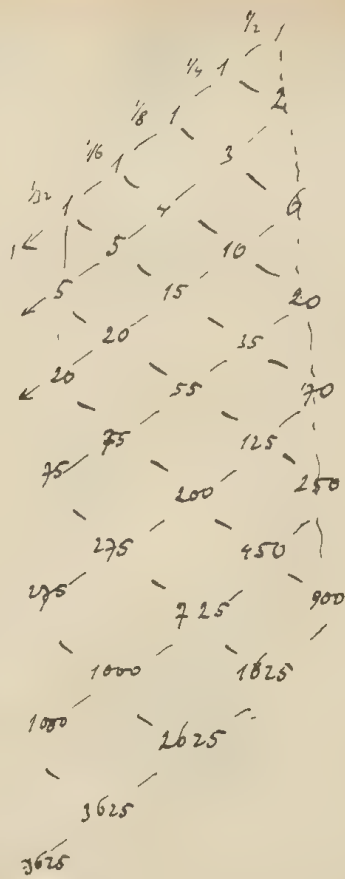 1/2 1
1/4 1
1/8 1 2
1/16 1 3
1/32 1 4 6
1 5 10
5 15 20
20 35
20 55 70
75 125
75 200 250
275 450
275 725 900
1000 1625
1000 2625
3625
3625